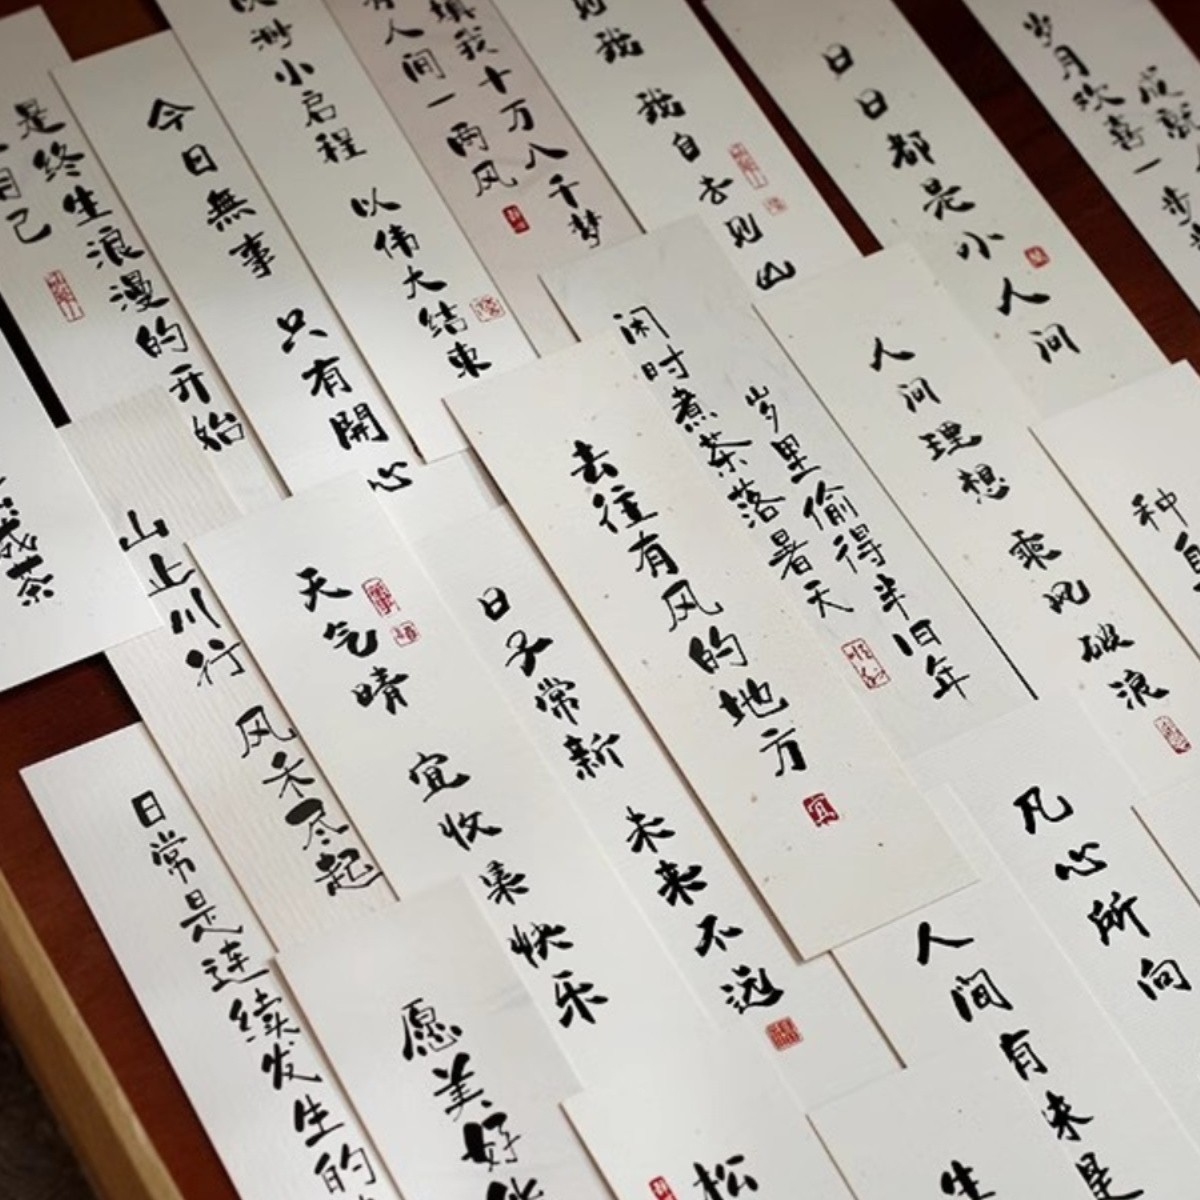 是终生浪漫的开始
自己
今日無事 只有開心
渺小启程 以伟大结束
填我十万八千梦
有人间一两风
见我 我自去见山
日日都是小人间
岁月欢喜一步步
闲时煮茶落暑天
岁里偷得半旧年
人间理想 乘风破浪
去往有风的地方
宜
种自
茶
山止川行 风禾尽起
天气晴 宜收集快乐
日子常新 未来不远
凡心所向
人间有来是
日常是连续发生的
愿美好
松
生